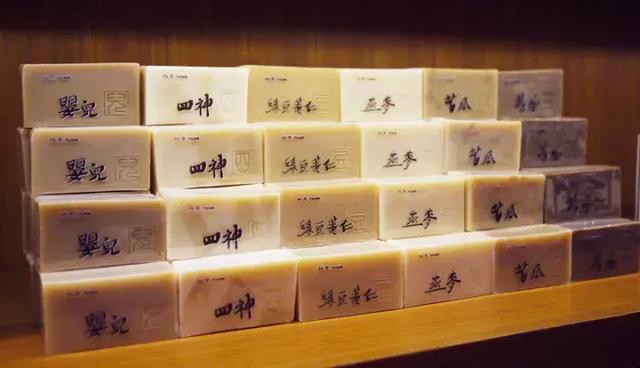 嬰兒 四神 綠豆薏仁 燕麥 苦瓜
嬰兒 四神 綠豆薏仁 燕麥 苦瓜
嬰兒 四神 綠豆薏仁 燕麥 苦瓜
嬰兒 四神 綠豆薏仁 燕麥 苦瓜